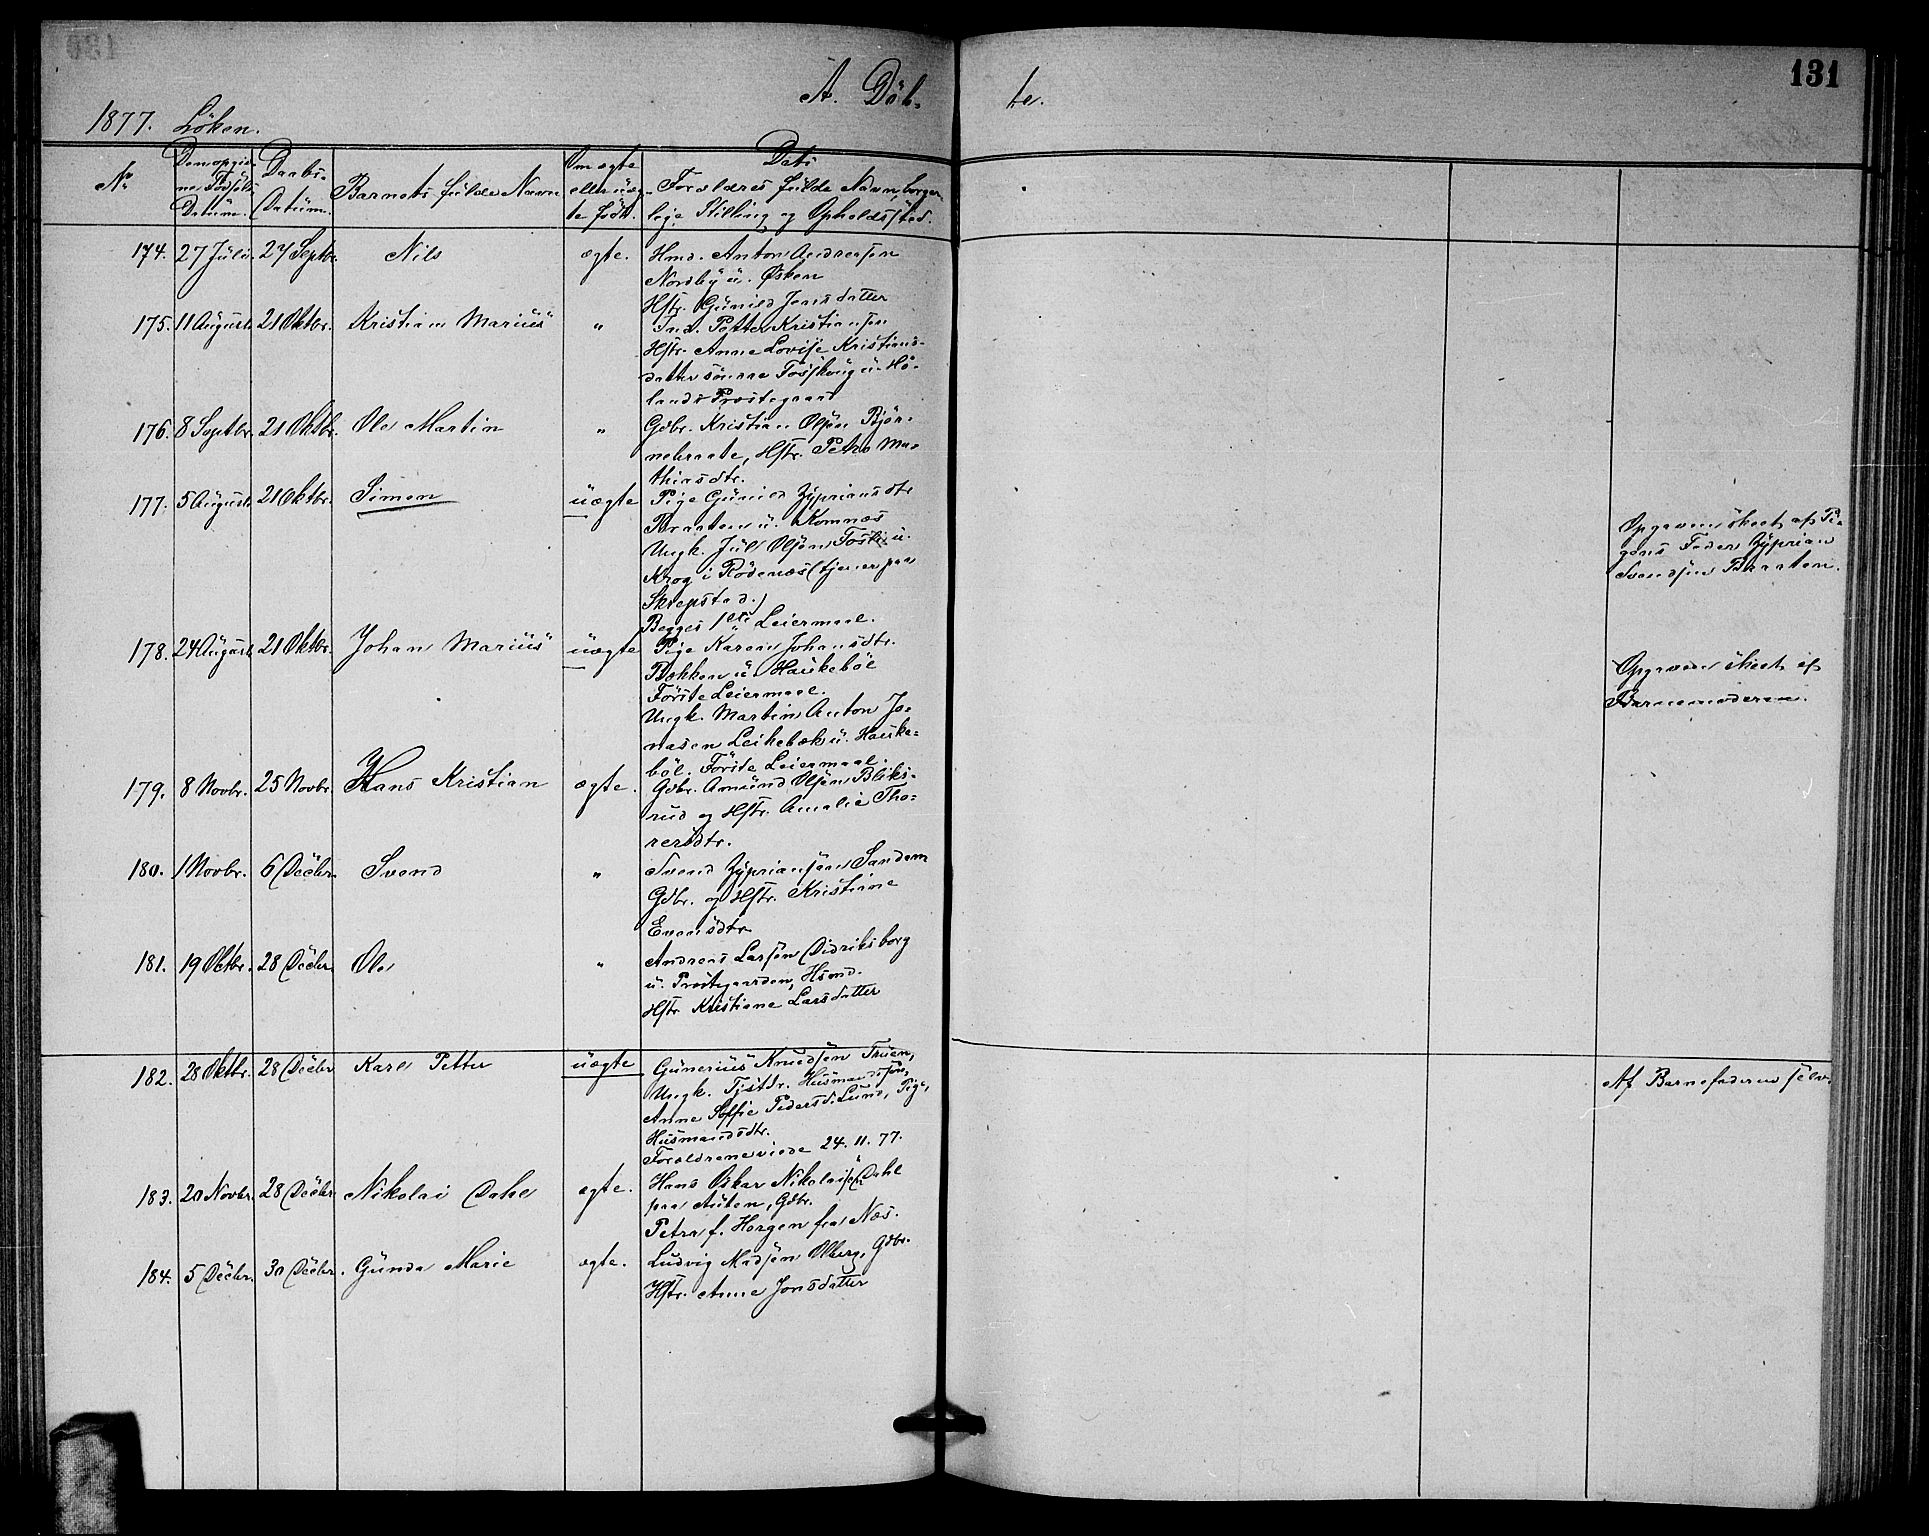 131
A. Döb-
te.
1877. Löken.
No
Den opgiv-
ne Födsels
Datum.
Daabs-
Datum.
Barnets fulde Navn
Om ægte
eller uæg-
te född.
Dets
Forældres fulde Navn, borger-
lige Stilling og Opholdssted.
174. 27 Juli. 27 Septbr. Nils ægte. Hmd. Anton Andreasen
Nordby u. Øsken
Hstr. Gunild Jensdatter
175. 11 August 21 Oktbr. Kristian Marius " Ind. Petter Kristiansen
Hstr. Anne Lovise Kristians-
datter söndre Fosshaug u. Hö-
lands Prestegaard
176. 8 Septbr. 21 Oktbr. Ole Martin " Gdbr. Kristian Olsen Björ-
nebraate, Hstr. Petra Ma-
thiasdtr.
177. 5 August 21 Oktbr. Simon uægte Pige Gunild Zypriansdtr
Braaten u. Komnæs
Ungk. Jul Olsen Foss u.
Krog i Rödenæs (tjener paa
Skrepstad.)
Begges 1ste Leiermaal.
Opgaven skeet af Pi-
gens Fader Zyprian
Svendsen Braaten.
178. 24 August 21 Oktbr. Johan Marius uægte Pige Karen Johansdtr.
Bakken u. Haukeböl
Förste Leiermaal.
Ungk. Martin Anton Jo-
nasen Leikebæk u. Hauke-
böl. Förste Leiermaal.
Opgaven skeet af
Barnemoderen.
179. 8 Novbr. 25 Novbr. Hans Kristian ægte. Gdbr. Amund Olsen Bliks-
rud og Hstr. Amalie Tho-
rersdtr.
180. 1 Novbr. 6 Decbr. Svend " Svend Zypriansen Sandem
Gdbr. og Hstr. Kristiane
Evensdtr
181. 19 Oktbr. 28 Decbr. Ole " Andreas Larsen Didriksborg
u. Prestegaarden, Hsmd.
Hstr Kristiane Larsdatter
182. 28 Oktbr. 28 Decbr Karl Petter uægte Gunerius Knudsen Truen,
Ungk. Tjstdr. Husmandssön,
Anne Soffie Pedersd. Lund, Pige,
Husmandsdtr.
Forældrene viede 24. 11. 77.
Af Barnefaderen selv.
183. 20 Novbr. 28 Decbr. Nikolai Dahl ægte. Hans Oskar Nikolaisen Dahl
paa Auten, Gdbr.
Petra f. Horgen fra Næs.
184. 5 Decbr. 30 Decbr. Gunda Marie ægte. Ludvig Madsen Olberg, Gdbr.
Hstr. Anne Jonsdatter